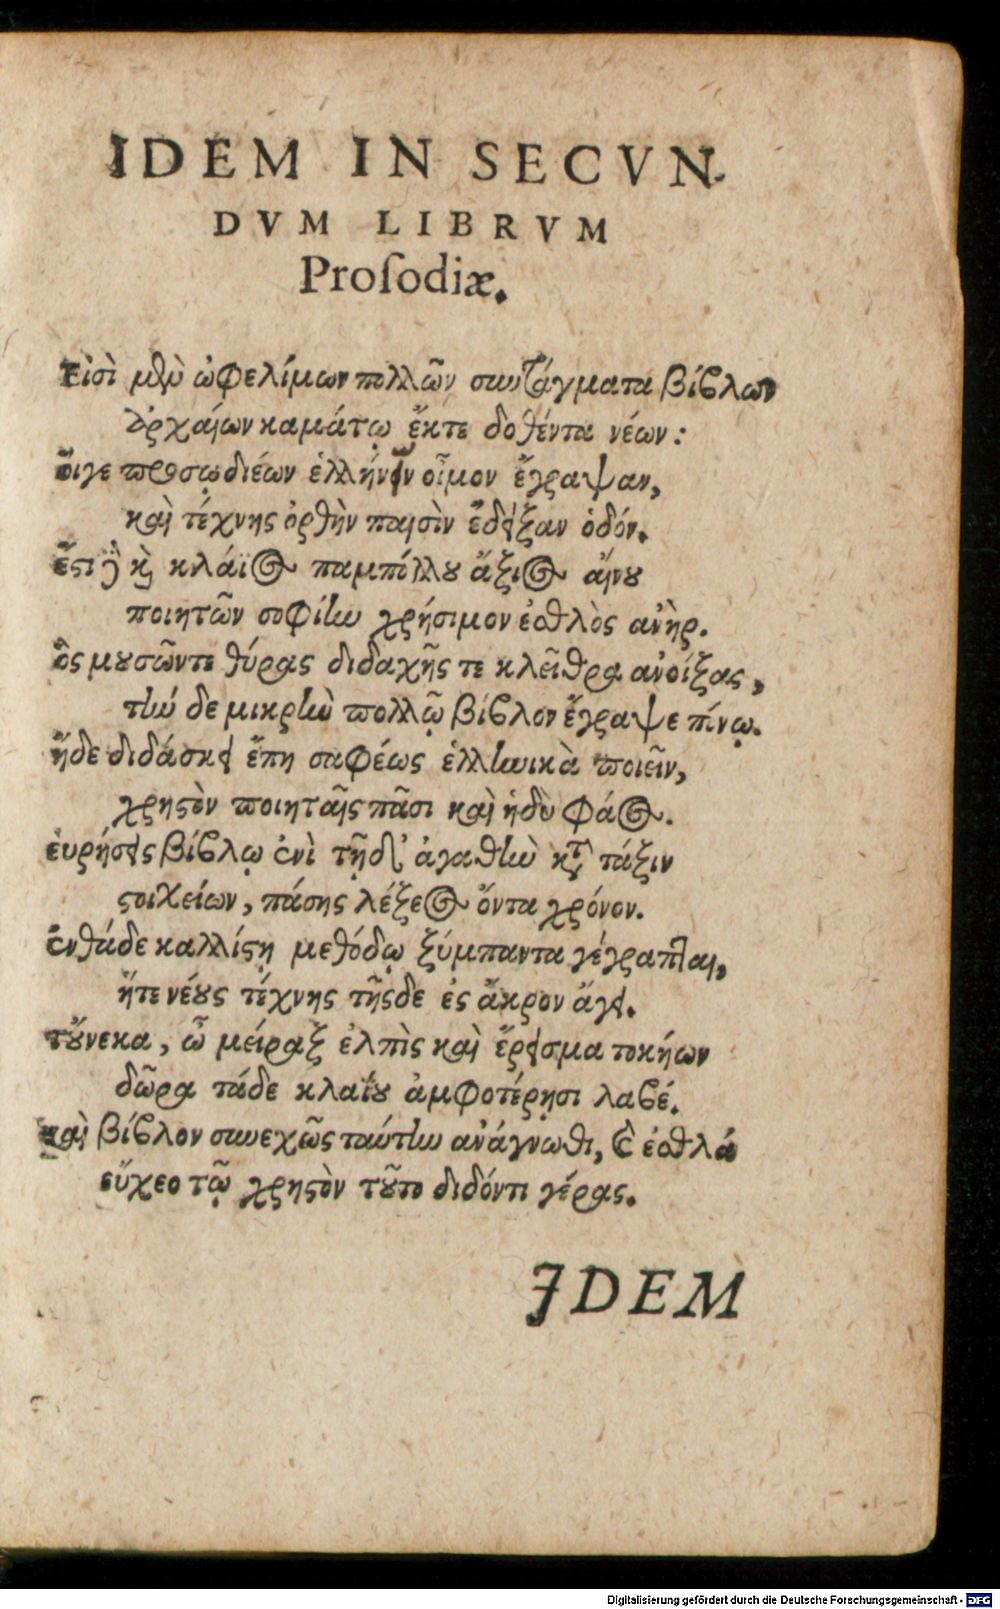 IDEM IN SECVN-
DVM LIBRVM
Proſodiæ.
Εἰσὶ μὲν ὠφελίμων πολλῶν συντάγματα βίβλων
ἀρχαίων καμάτῳ ἔκτε δοθέντα νέων:
οἵγε προσῳδιέων ἑλλήνων οἶμον ἔγραψαν,
καὶ τέχνης ὀρθὴν παισὶν ἔδειξαν ὁδόν.
ἔστι καὶ κλάϊος παμπόλλου ἄξιος αἴνου
ποιητῶν σοφίην χρήσιμον ἐσθλὸς ἀνὴρ.
ὃς μουσῶντε θύρας διδαχῆς τε κλεῖθρα ἀνοίξας,
τήν δε μικρὴν πολλῷ βίβλον ἔγραψε πόνῳ.
ἥδε διδάσκει ἔπη σαφέως ἑλληνικὰ ποιεῖν,
χρηστὸν ποιηταῖς πᾶσι καὶ ἡδὺ φάος.
εὑρήσεις βίβλῳ ἐνὶ τῇδ' ἀγαθὴν κατὰ τάξιν
στοιχείων, πάσης λέξεος ὄντα χρόνον.
ἐνθάδε καλλίστῃ μεθόδῳ ξύμπαντα γέγραπται,
ἥτε νέους τέχνης τῆςδε ἐς ἄκρον ἄγει.
τοὔνεκα, ὦ μείραξ ἐλπὶς καὶ ἔρεισμα τοκήων
δῶρα τάδε κλαΐου ἀμφοτέρῃσι λαβέ.
καὶ βίβλον συνεχῶς ταύτην ἀνάγνωθι, καὶ ἐσθλά
εὔχεο τῷ χρηστὸν τοῦτο διδόντι γέρας.
IDEM
Digitalisierung gefördert durch die Deutsche Forschungsgemeinschaft - DFG